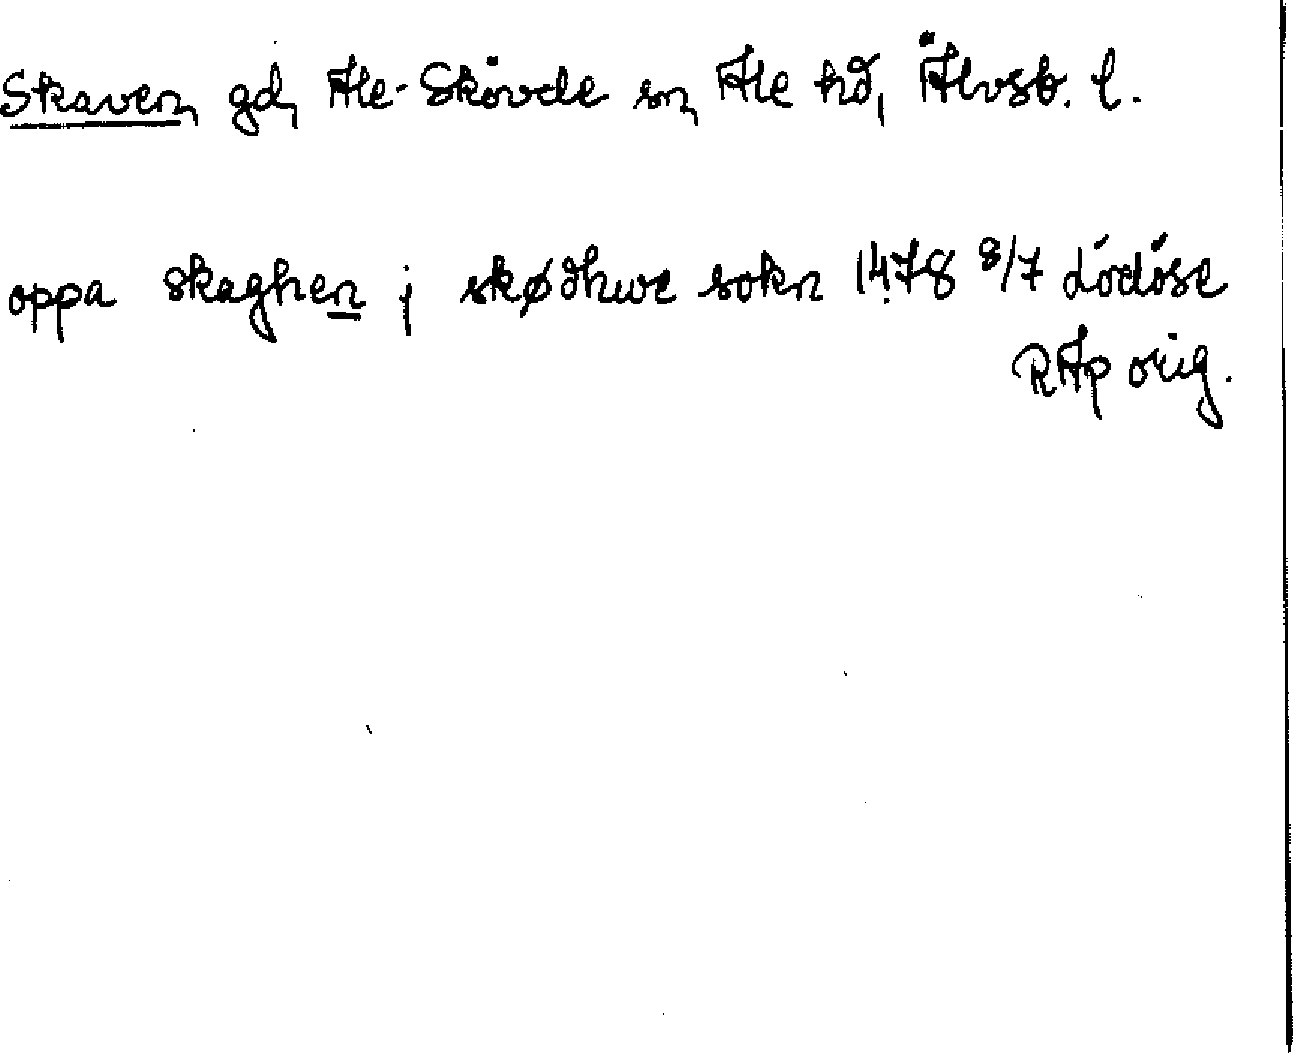 Skaven, gd, Ale-Skövde sn, Ale hd, Älvsb. l.
oppa skaghen j skødhwe sokn 1478 8/7 Lödöse
RAp orig.